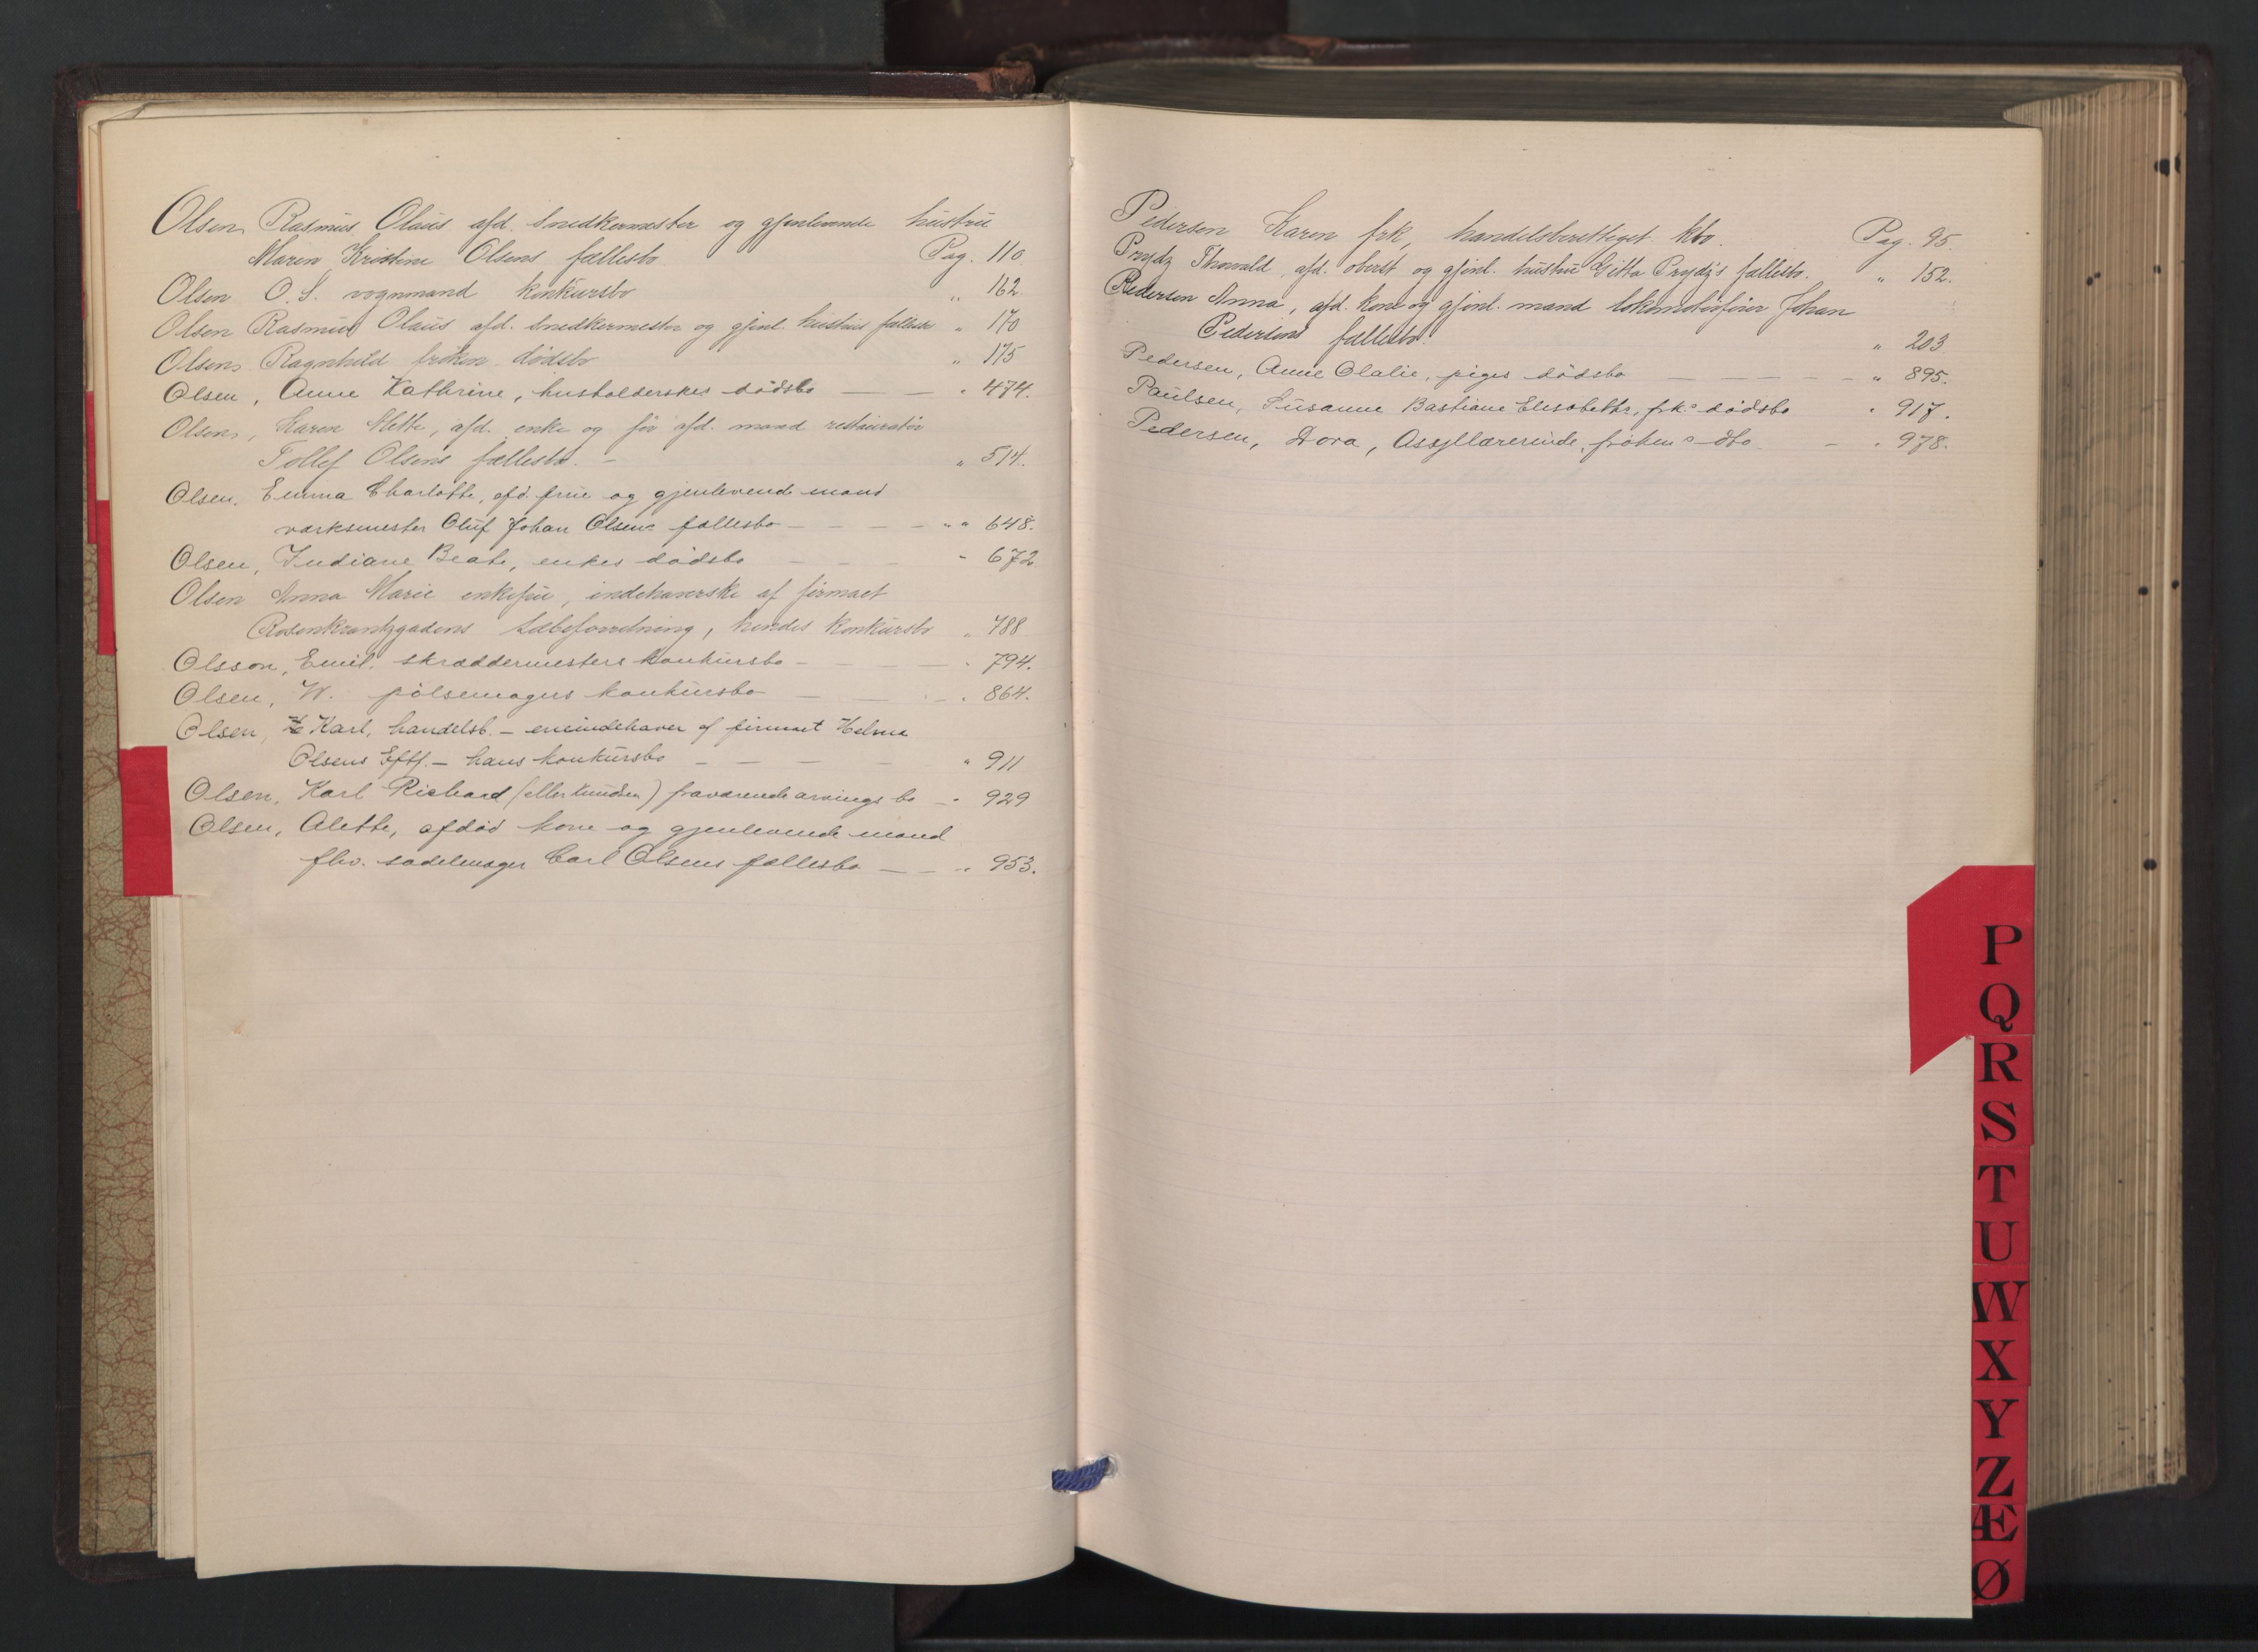 Olsen, Rasmus Olaus afd. snedkermester og gjenlevende hustru
Maren Kristine Olsens fællesbo. Pag. 110
Olsen O. S. vognmand konkursbo " 162
Olsen Rasmus Olaus afd. snedkermester og gjenl. hustrus fællesbo " 170
Olsen, Ragnhild frøken dødsbo " 175
Olsen, Anne Kathrine, husholderskes dødsbo — — " 474.
Olsen, Karen Mette, afd. enke og før afd. mand restauratør
Tollef Olsens fællesbo. — " 514.
Olsen, Emma Charlotte, afd. frue og gjenlevende mand
værksmester Oluf Johan Olsens fællesbo — — — — " " 648.
Olsen, Indiane Beate, enkes dødsbo — — — " 672
Olsen Anna Marie enkefrue, indehaverske af firmaet
Rosenkrantzgadens sæbeforretning, hendes konkursbo " 788
Olsson, Emil. skræddermesters konkursbo — — — " 794.
Olsen, W. pølsemagers konkursbo — — — " 864.
Olsen, Karl, handelsb. — eneindehaver af firmaet Helma
Olsens Eftf. — hans konkursbo — — — — " 911
Olsen, Karl Richard (eller Knudsen) fraværende arvings bo — " 929
Olsen, Alette, afdød kone og gjenlevende mand
fhv. sadelmager Carl Olsens fællesbo — — " 953.
Pedersen Karen frk, handelsberettiget kbo. Pag. 95.
Prydz Thorvald, afd. oberst og gjenl. hustru Gitta Prydz's fællesbo. " 152.
Pedersen Anna, afd. kone og gjenl. mand lokomotivfører Johan
Pedersens fællesbo. " 203
Pedersen, Anne Olalie, piges dødsbo — — — — " 895.
Paulsen, Susanne Bastiane Elisabeth, frk.s dødsbo " 917.
Pedersen, Dora, Asyllærerinde, frøkens dbo. — " 978.
P
Q
R
S
T
U
W
X
Y
Z
Æ
Ø